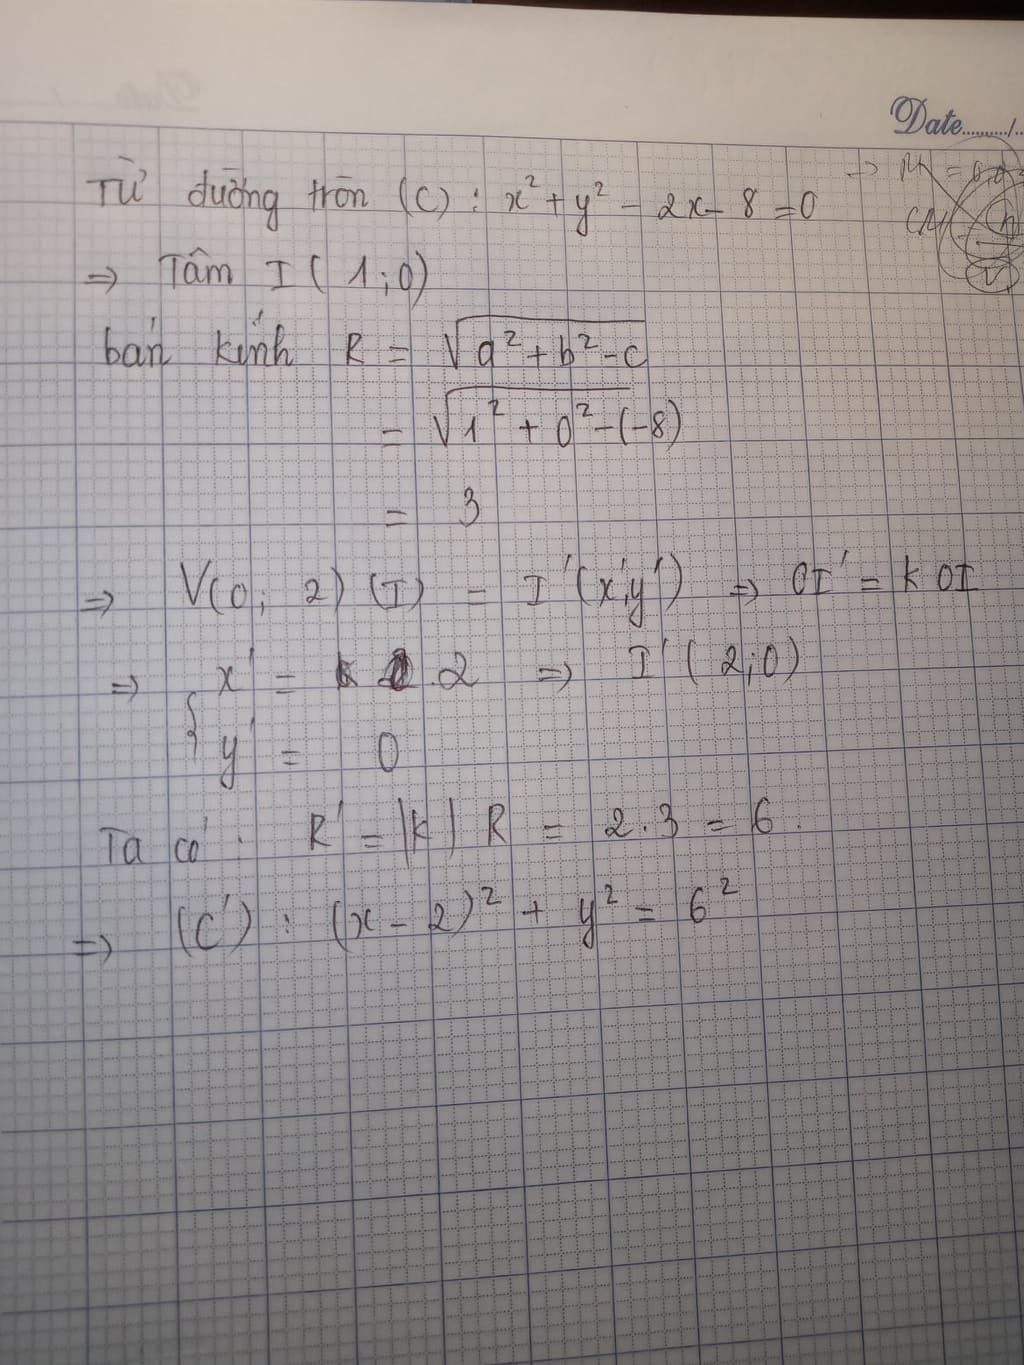 Date........../..
Từ đường tròn (C) : x² + y² - 2x - 8 = 0
⇒ Tâm I ( 1 ; 0 )
bán kính R = √a² + b² - c
= √1² + 0² - (-8)
= 3
⇒ V(0; 2) (I) = I' (x', y') ⇒ OI' = k OI
⇒ { x' = 2 ⇒ I' ( 2 ; 0 )
y' = 0
Ta có : R' = |k| R = 2 . 3 = 6 .
⇒ (C') : (x - 2)² + y² = 6²